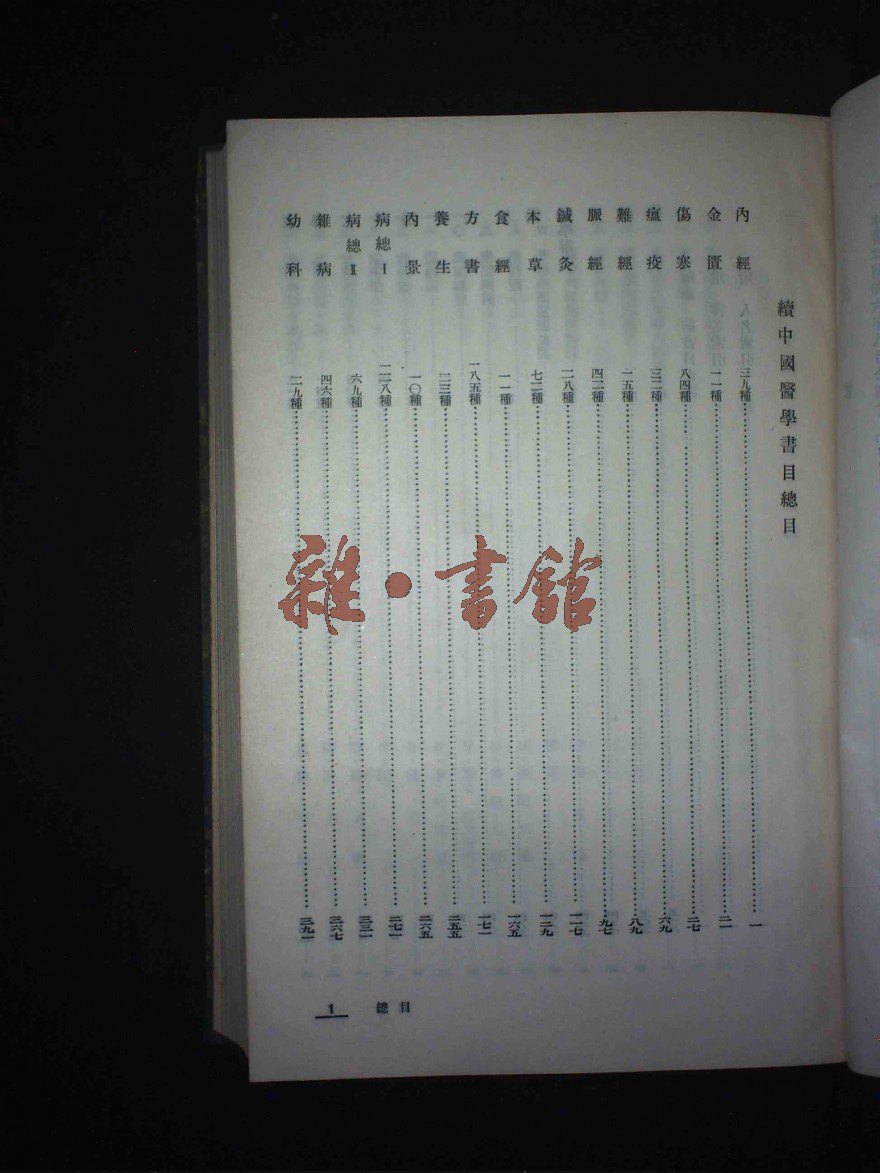 續中國醫學書目總目
內經 三九種 一
金匱 一一種 二一
傷寒 八四種 二七
瘟疫 三二種 六九
難經 一五種 八九
脈經 四二種 九七
鍼灸 二八種 一一七
本草 七二種 一二九
食經 一一種 一六五
方書 一八五種 一七一
養生 二三種 二五五
內景 一〇種 二六五
病總I 一二八種 二七一
病總II 六九種 三三一
雜病 四六種 三六七
幼科 二九種 三九一
總目
1
雜·書館